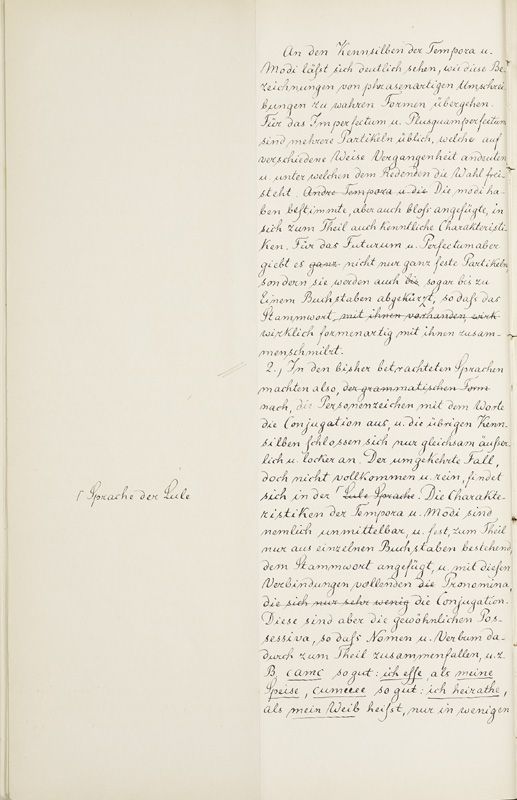 An den Kennsilben der Tempora u.
Modi läſst sich deutlich sehen, wie diese Be-
zeichnungen von phrasenartigen Umschrei-
bungen zu wahren Formen übergehen.
Für das Imperfectum u. Plusquamperfectum
sind mehrere Partikeln üblich, welche auf
verschiedene Weise Vergangenheit andeuten
u. unter welchen dem Redenden die Wahl frei-
steht. Andre Tempora u. die Die modi ha-
ben beſtimmte, aber auch bloſs angefügte, in
sich zum Theil auch kenntliche Charakteristi-
ken. Für das Futurum u. Perfectum aber
giebt es ganz nicht nur ganz feste Partikeln,
sondern sie werden auch bis sogar bis zu
Einem Buchstaben abgekürzt, so daſs das
Stammwort, mit ihnen vorhanden, wirk
wirklich formenartig mit ihnen zusam-
menschmilzt.
2., In den bisher betrachteten Sprachen
machten also, der grammatischen Form
nach, die Personenzeichen mit dem Worte
die Conjugation aus, u. die übrigen Kenn-
silben ſchlossen sich nur gleichsam äuſser-
lich u. locker an. Der umgekehrte Fall,
doch nicht vollkommen u. rein, findet
sich in der ⌈ Lule Sprache. Die Charakte-
⌈ Sprache der Lule
ristiken der Tempora u. Modi sind
nemlich unmittelbar, u. fest, zum Theil
nur aus einzelnen Buchstaben bestehend,
dem Stammwort angefügt, u. mit dieſen
Verbindungen vollenden die Pronomina,
die sich nur sehr wenig die Conjugation.
Diese sind aber die gewöhnlichen Pos-
sessiva, so daſs Nomen u. Verbum da-
durch zum Theil zusammenfallen, u. z.
B. camc so gut: ich eſſe, als meine
Speise, cumueec so gut: ich heirathe,
als mein Weib heiſst, nur in wenigen